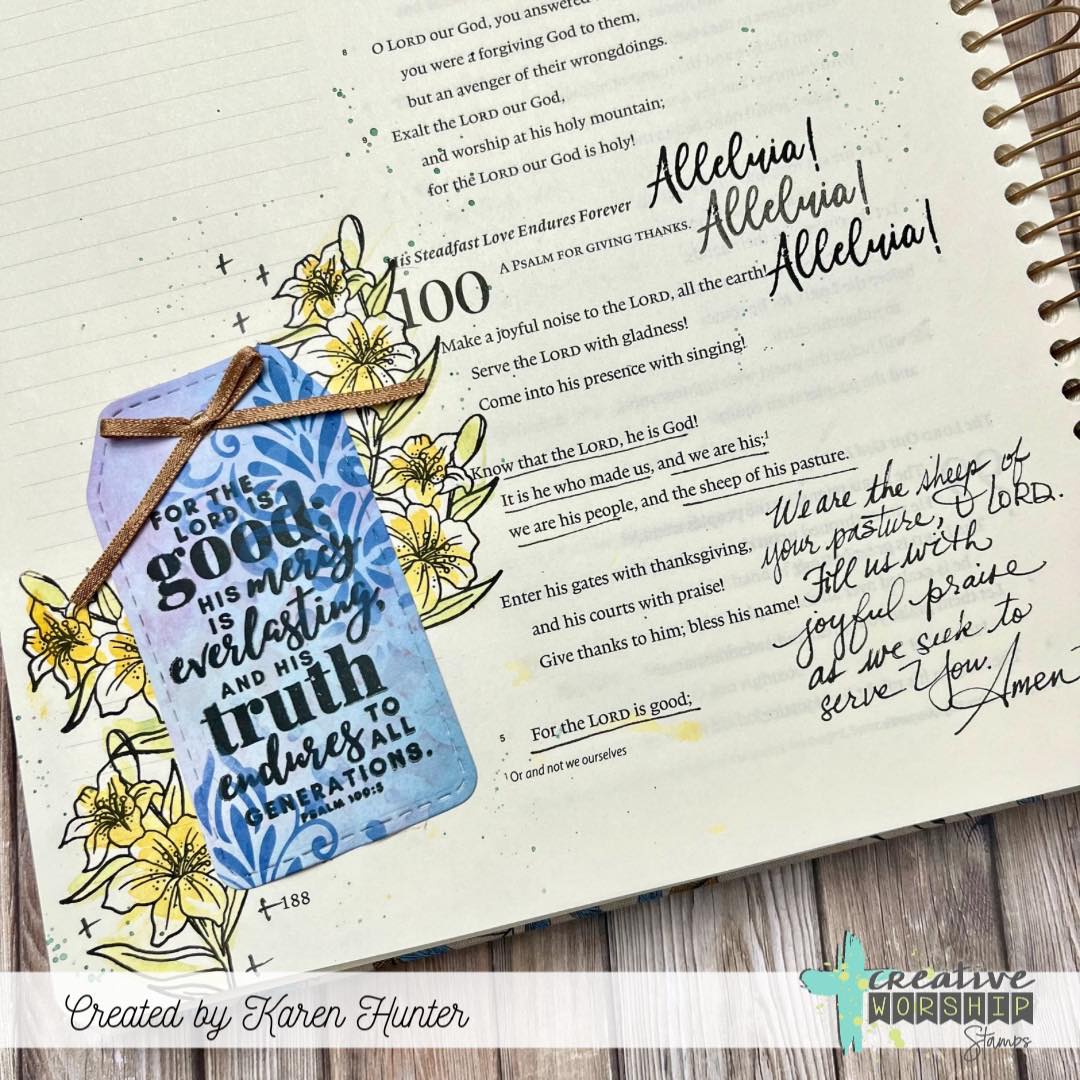 O LORD our God, you answered
8
you were a forgiving God to them,
but an avenger of their wrongdoings.
9 Exalt the LORD our God,
and worship at his holy mountain;
for the LORD our God is holy!
Alleluia!
Alleluia!
Alleluia!
His Steadfast Love Endures Forever
100 A PSALM FOR GIVING THANKS.
Make a joyful noise to the LORD, all the earth!
Serve the LORD with gladness!
Come into his presence with singing!
Know that the LORD, he is God!
It is he who made us, and we are his;¹
we are his people, and the sheep of his pasture.
Enter his gates with thanksgiving,
and his courts with praise!
Give thanks to him; bless his name!
5 For the LORD is good;
¹ Or and not we ourselves
We are the sheep of
your pasture, O LORD.
Fill us with
joyful praise
as we seek to
serve You.
Amen
FOR THE
LORD IS
good;
HIS mercy
IS
everlasting,
AND HIS
truth
endures TO
ALL
GENERATIONS.
PSALM 100:5
188
Created by Karen Hunter
creative
WORSHIP
Stamps